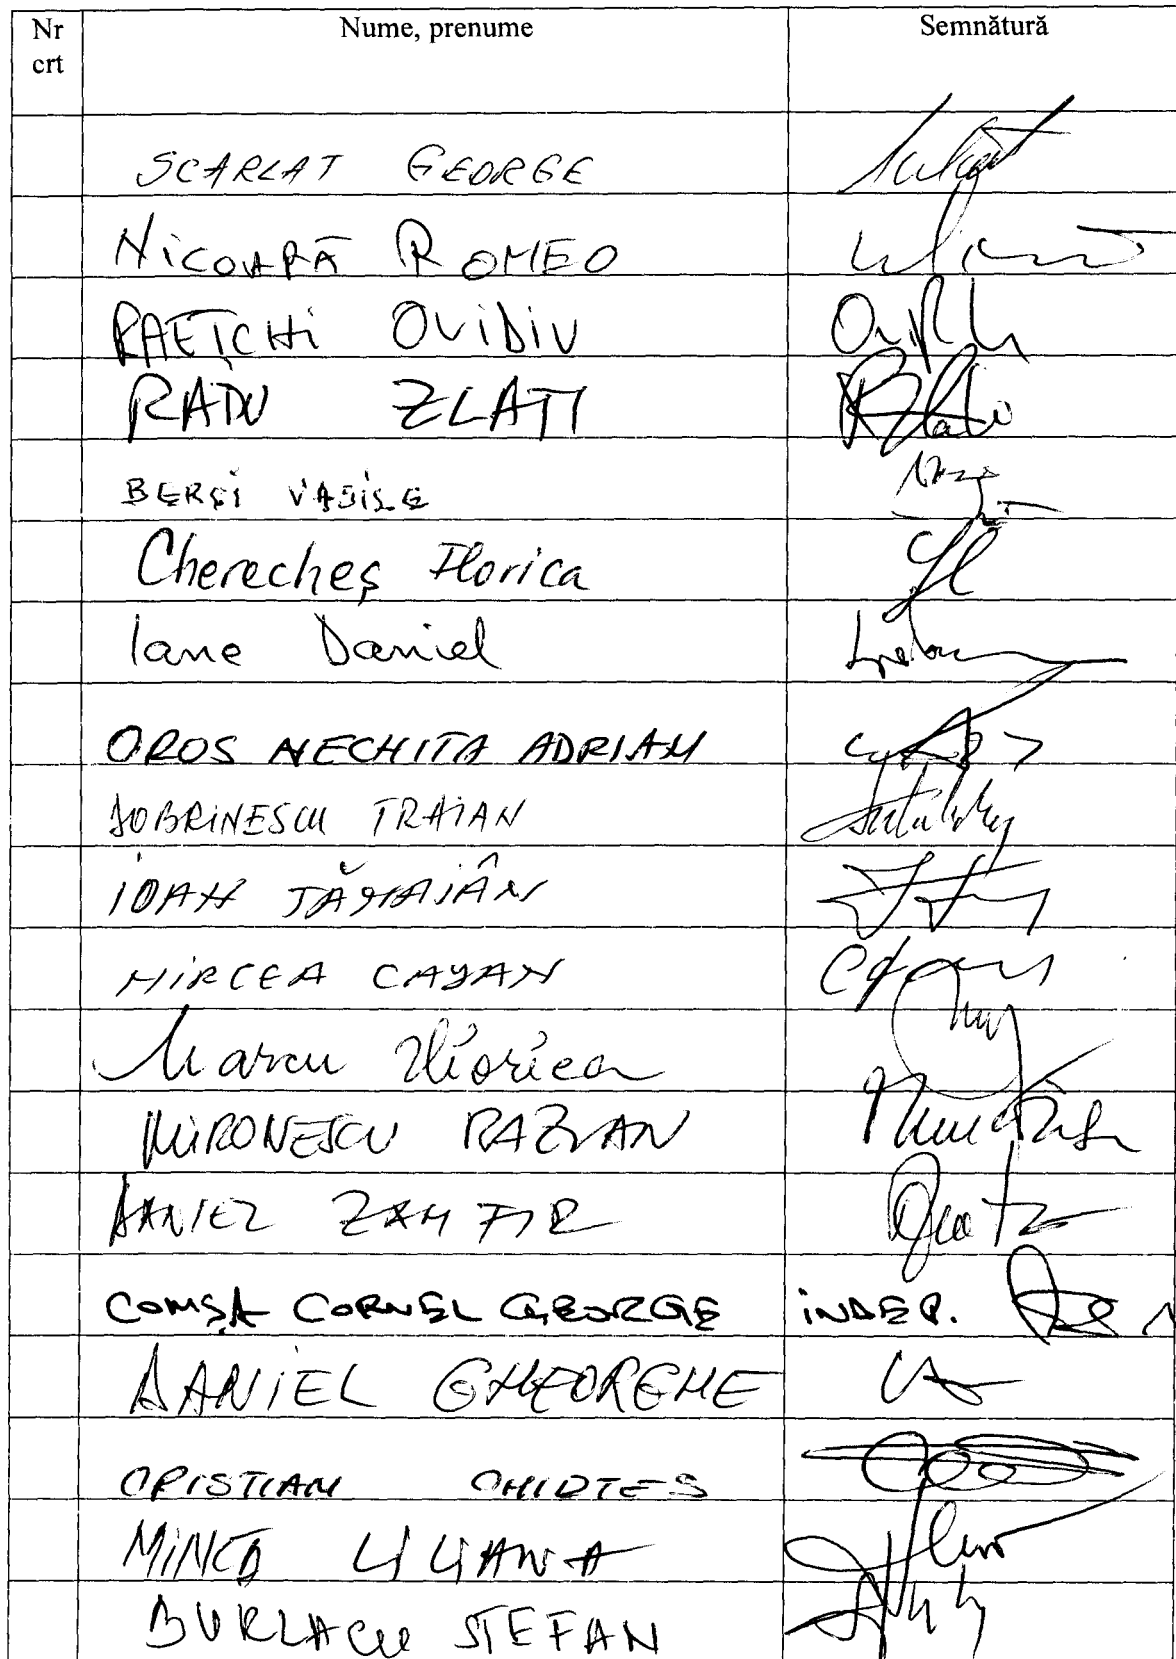 Nr Nume, prenume Semnătură
crt
SCARLAT GEORGE
NICOARĂ ROMEO
RAEȚCHI OVIDIU
RADU ZLATI
BERCI VASILE
Cherecheș Florica
Iane Daniel
OROS NECHITA ADRIAN
DOBRINESCU TRAIAN
IOAN TĂMÂIAN
MIRCEA CAZAN
Marcu Viorica
MIRONESCU RAZVAN
DANIEL ZAMFIR
COMȘA CORNEL GEORGE INDEP.
DANIEL GHEORGHE
CRISTIAN
MINCĂ LILIANA
BURLACU STEFAN